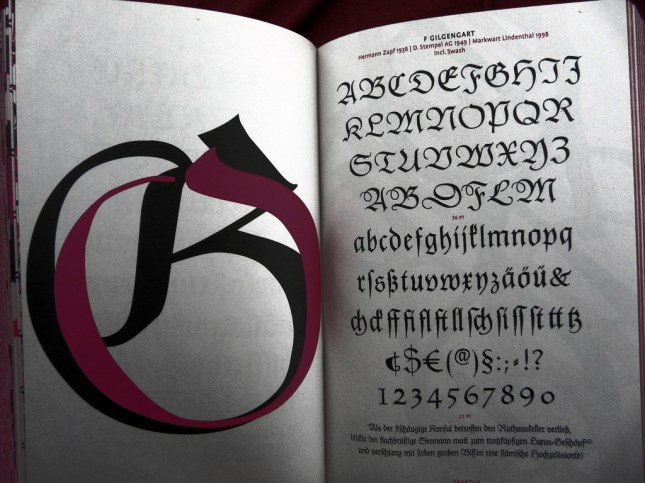 G
F GILGENGART
Hermann Zapf 1938 | D. Stempel AG 1949 | Markwart Lindenthal 1998
Incl. Swash
ABCDEFGHIJ
KLMNOPQR
STUVWXYZ
ABDFLM
36 PT
abcdefghijklmnopq
rſsßtuvwxyzäöü&
chckfffiflftllſchſiſſſttttz
¢$€(@)§:;-!?
1234567890
Als der fischäugige Konsul betroffen den Rathauskeller verließ,
blickte der flachbrüstige Seemann matt zum trotzköpfigen Luxus-Geschöpf
und verschlang mit sieben großen Bissen eine flämische Hochzeitstorte!